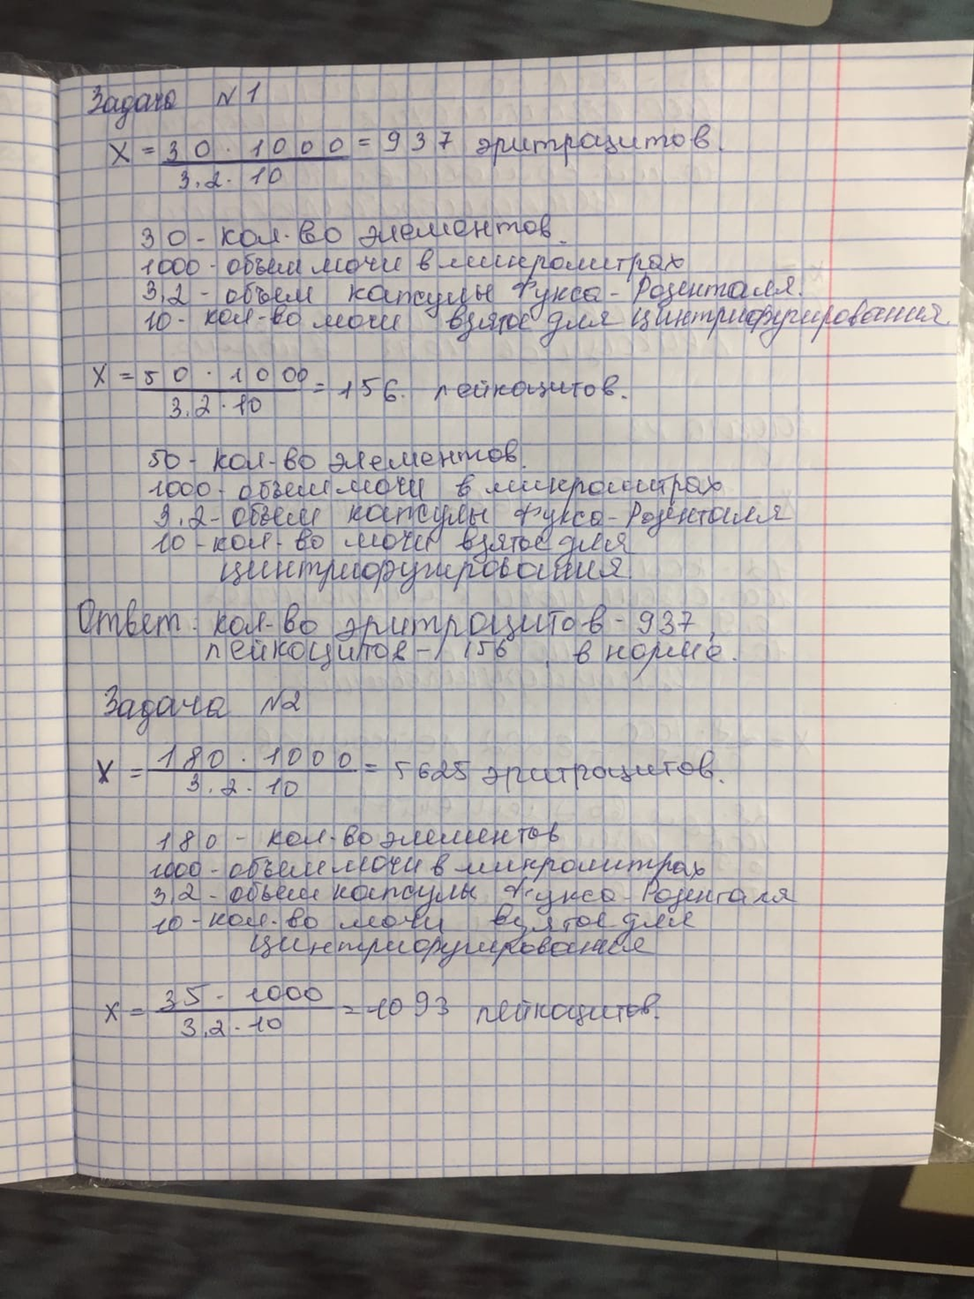 Задача №1
X = 30 · 1000 = 937 эритрацитов.
3,2 · 10
30 - кол-во элементов.
1000 - объем мочи в микролитрах
3,2 - объем капсулы Фукса-Розенталя.
10 - кол-во мочи взятое для цинтриофугирования.
X = 50 · 1000 = 156. лейкоцитов.
3,2 · 10
50 - кол-во элементов.
1000 - объем мочи в микролитрах
3,2 - объем капсулы Фукса-Розенталля
10 - кол-во мочи взятое для
цинтриофугирования.
Ответ: кол-во эритроцитов - 937,
лейкоцитов - 156, в норме.
Задача №2
X = 180 · 1000 = 5625 эритроцитов.
3,2 · 10
180 - кол-во элементов
1000 - объем мочи в микролитрах
3,2 - объем капсулы Фукса-Розенталя
10 - кол-во мочи взятое для
цинтриофугирования
X = 35 · 1000 = 1093 лейкоцитов.
3,2 · 10